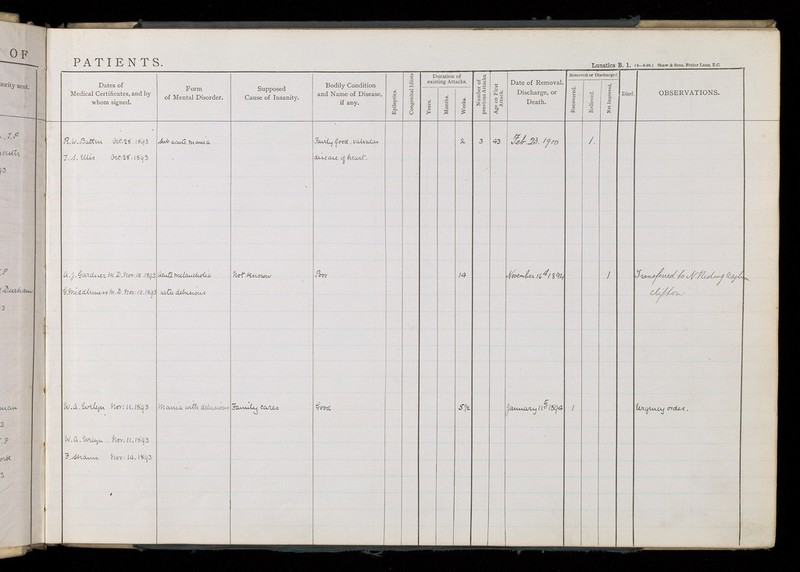 OF
PATIENTS.
Lunatics B. 1.
Shaw & Sons, Fetter Lane, E.C.
Dates of
Medical Certificates, and by
whom signed.
Form
of Mental Disorder.
Supposed
Cause of Insanity.
Bodily Condition
and Name of Disease,
if any.
Epileptics.
Congenital Idiots
Duration of
existing Attacks.
Years.
Months.
Weeks.
Number of
previous Attacks
Age on First
Attack.
Date of Removal,
Discharge, or
Death.
Removed or Discharged
Recovered.
Relieved.
Not Improved.
Died.
OBSERVATIONS.
Oct. 28. 1893 Sub acute mania Fairly good. valvular 2 3 43 Feb 23. 1900 1.
T. S. Ellis Oct. 28. 1893 disease of heart.
A. J. Gardner M.D. Nov. 10. 1893 Acute melancholia Not known Poor 14 November 16th 1894 1 Transferred to N Riding Asylum
M.D. Nov. 10. 1893 with delusions Clifton
W. A. Evelyn Nov. 11. 1893 Mania with delusions Family cares Good 5/2 January 11th 1894 1 Urgency order.
W. A. Evelyn Nov. 11. 1893
Nov. 14. 1893